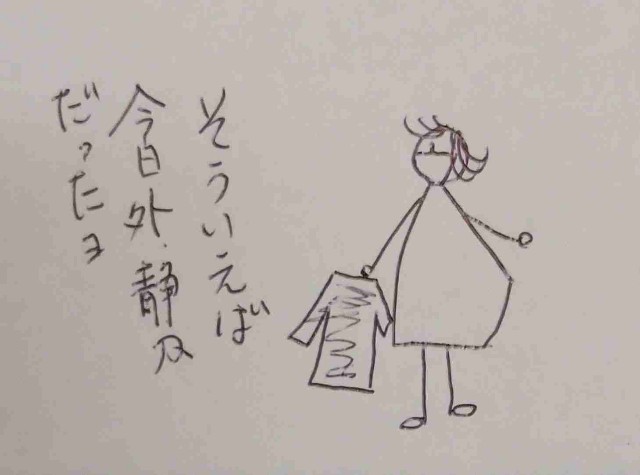 そういえば
今日外、静か
だったヨ